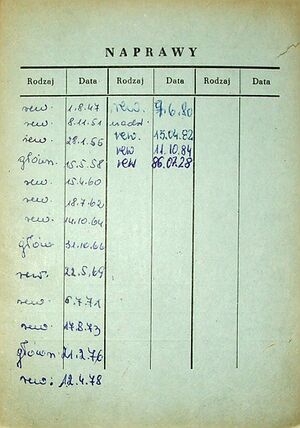 NAPRAWY
Rodzaj Data Rodzaj Data Rodzaj Data
rew. 1.8.47 rew. 9.6.80
rew. 8.11.51 nadzw.
rew. 28.1.55 rew. 15.04.82
główn. 15.5.58 rew 11.10.84
rew. 15.4.60 rew 86.02.28
rew. 18.7.62
rew. 14.10.64
główn 31.10.66
rew. 22.5.69
rew. 6.7.71
rew. 17.8.73
główn 21.2.76
rew: 12.4.78